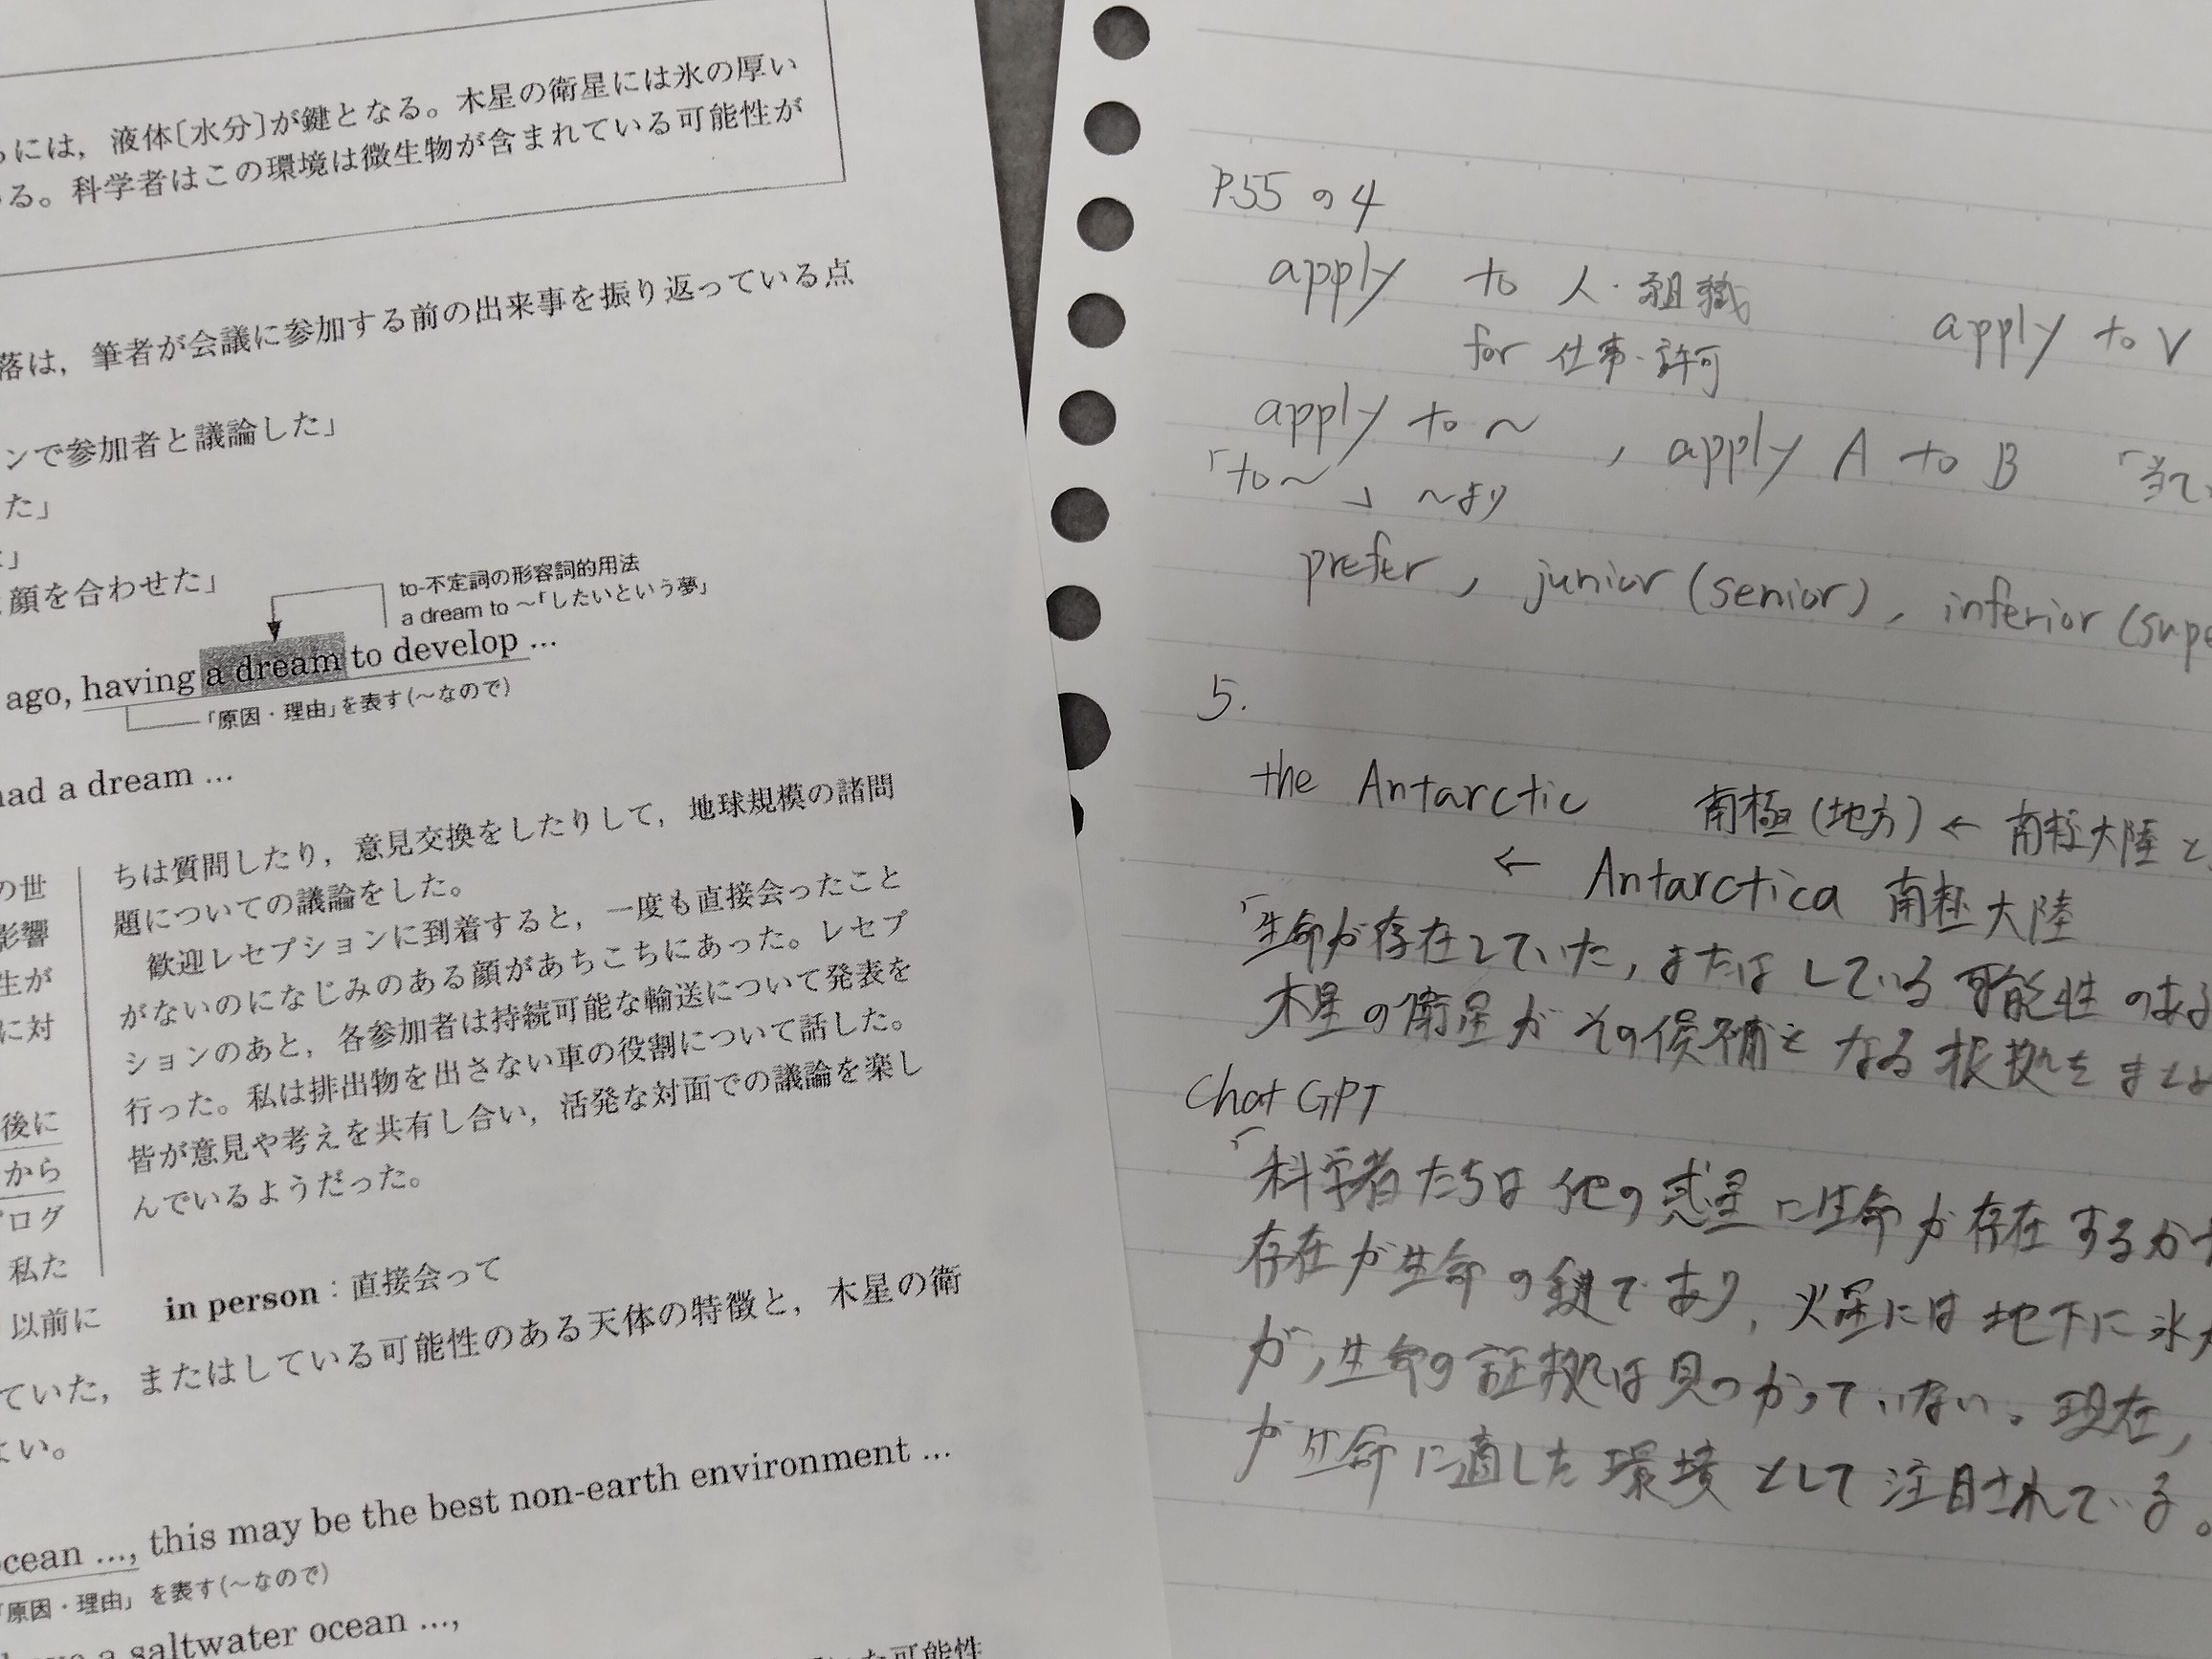 らには，液体〔水分〕が鍵となる。木星の衛星には氷の厚い
る。科学者はこの環境は微生物が含まれている可能性が
落は，筆者が会議に参加する前の出来事を振り返っている点
ンで参加者と議論した」
た」
」
顔を合わせた」
to-不定詞の形容詞的用法
a dream to ～「したいという夢」
ago, having a dream to develop ...
「原因・理由」を表す(～なので)
had a dream ...
の世
影響
生が
に対
後に
から
ログ
私た
以前に
ちは質問したり，意見交換をしたりして，地球規模の諸問
題についての議論をした。
歓迎レセプションに到着すると，一度も直接会ったこと
がないのになじみのある顔があちこちにあった。レセプ
ションのあと，各参加者は持続可能な輸送について発表を
行った。私は排出物を出さない車の役割について話した。
皆が意見や考えを共有し合い，活発な対面での議論を楽し
んでいるようだった。
in person：直接会って
ていた，またはしている可能性のある天体の特徴と，木星の衛
よい。
ocean ..., this may be the best non-earth environment ...
「原因・理由」を表す(～なので)
a saltwater ocean ...,
可能性
P.55 の 4
apply to 人・組織
for 仕事・許可
apply to V
apply to ～ , apply A to B 「当て
「to ～ 」 ～より
prefer, junior (senior), inferior (supe
5.
the Antarctic 南極(地方) ← 南極大陸と
← Antarctica 南極大陸
「生命が存在していた, または している 可能性 のある
木星の衛星が その候補と なる 根拠を まとめ
Chat GPT
「科学者たちは 他の惑星に生命が存在するか
存在が生命の鍵であり, 火星には 地下に 氷
が, 生命の証拠は見つかっていない。現在,
が生命に適した環境 として 注目されている。